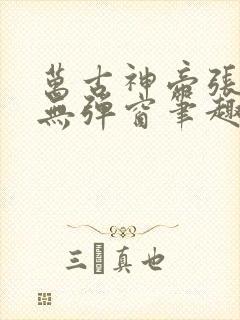 萬古神帝張
無彈窗筆趣
三�真也